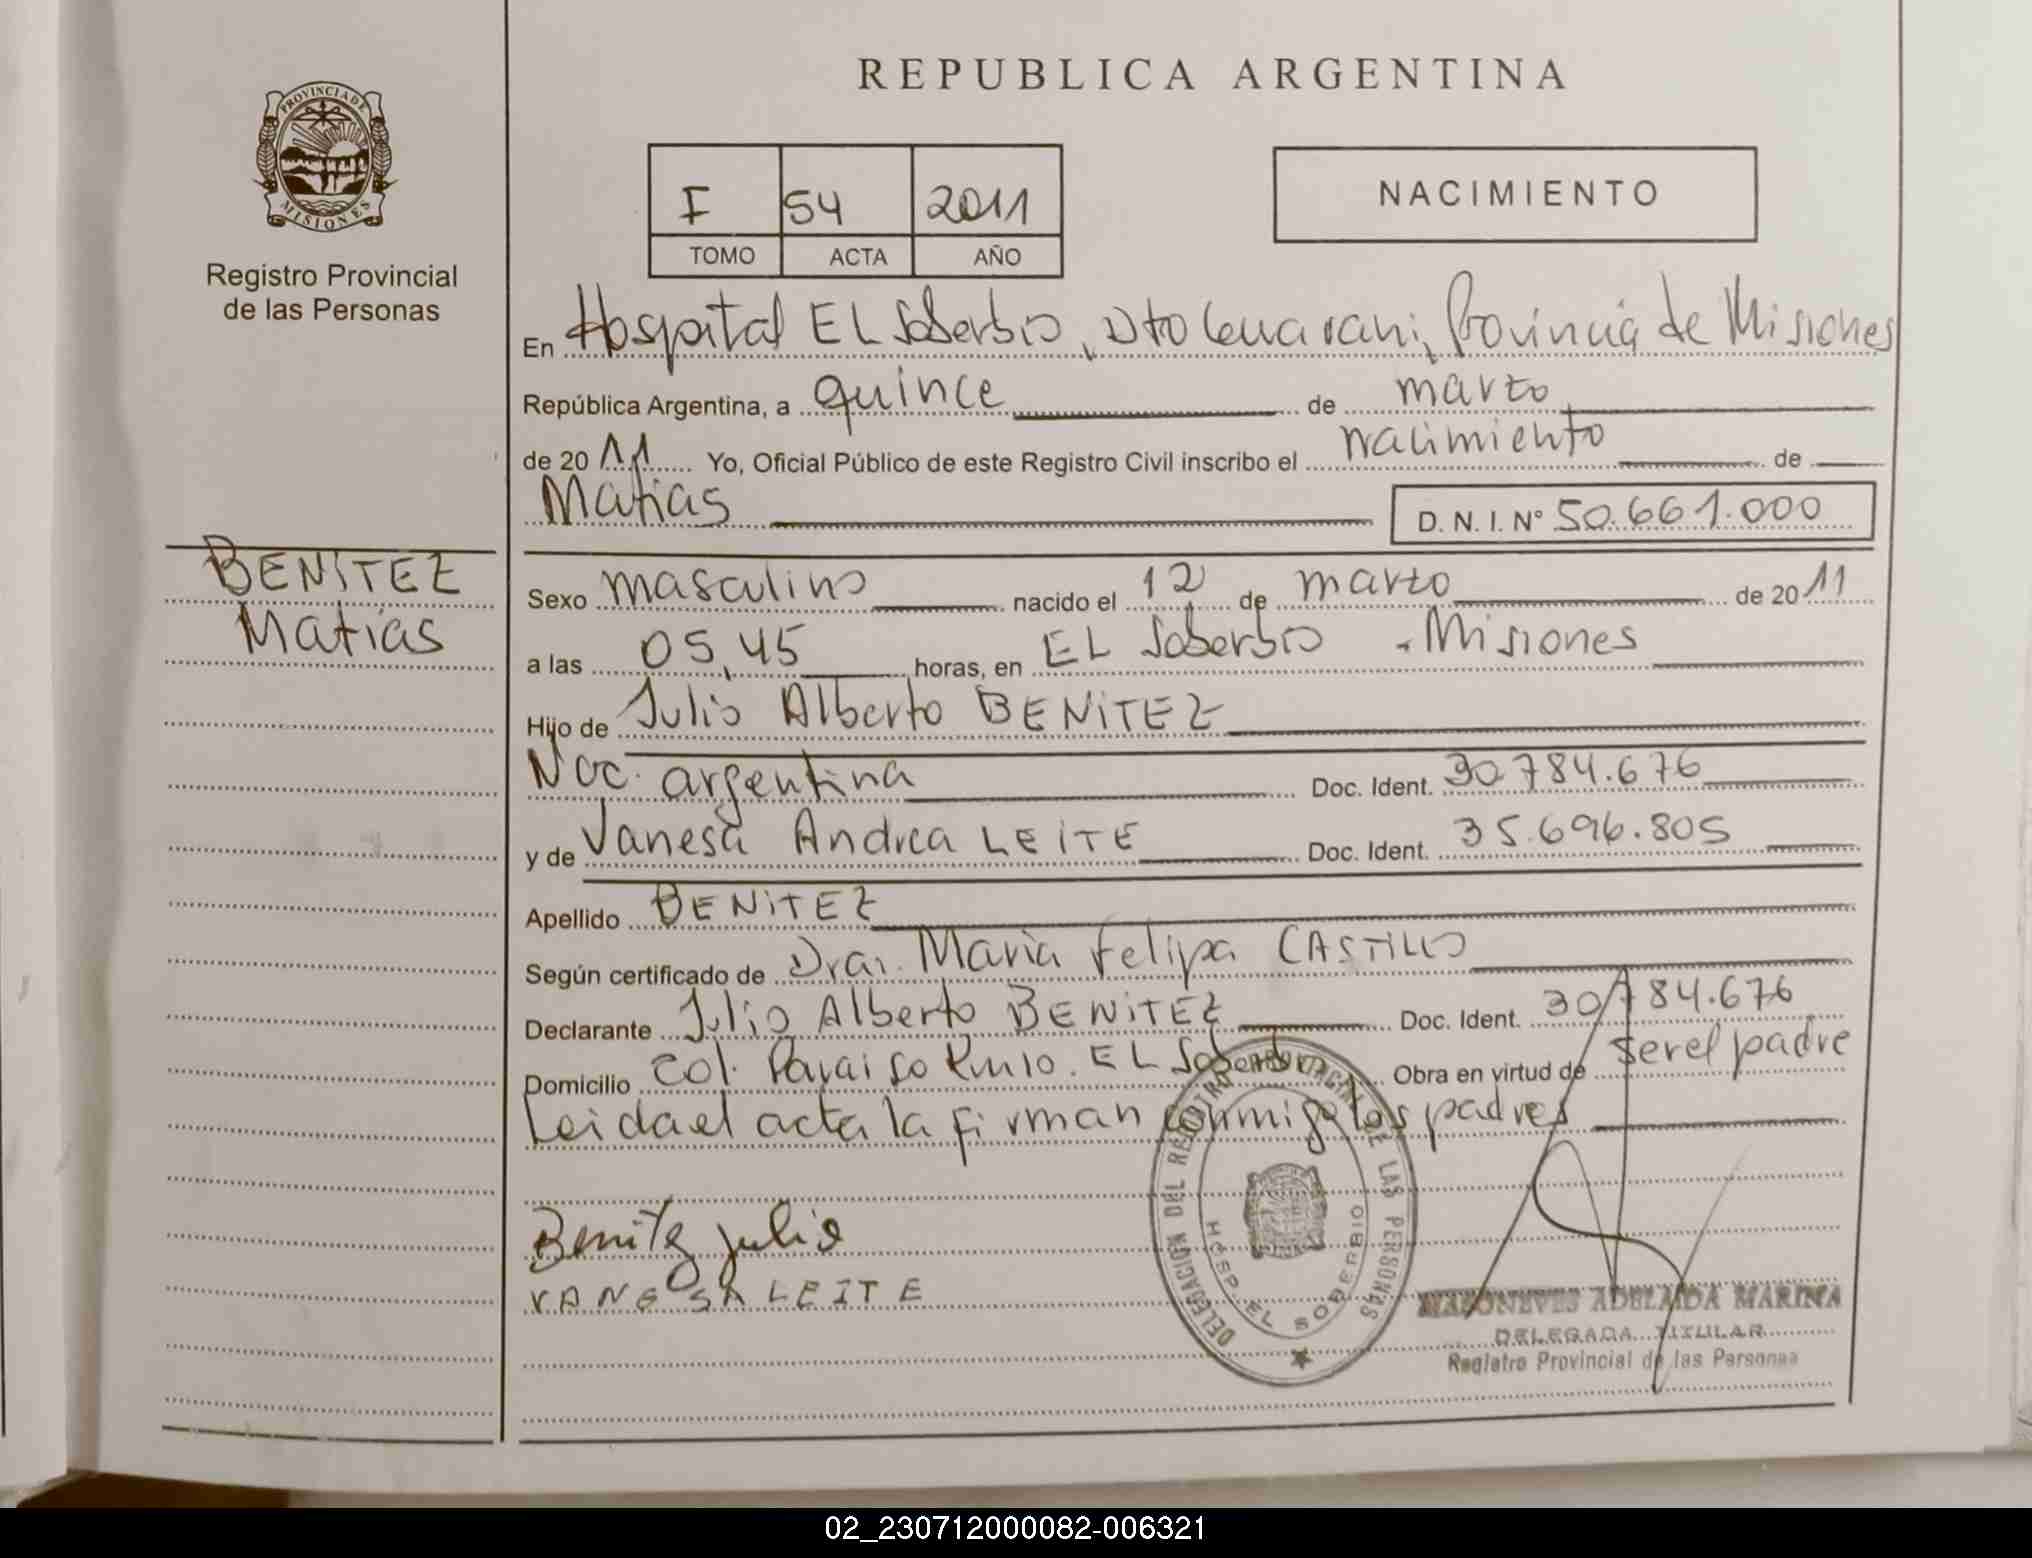 REPUBLICA ARGENTINA
PROVINCIA DE MISIONES
Registro Provincial
de las Personas
I 54 2011
TOMO ACTA AÑO
NACIMIENTO
En Hospital EL Soberbio, Dto Guarani, Provincia de Misiones
República Argentina, a quince de marzo
de 2011 Yo, Oficial Público de este Registro Civil inscribo el nacimiento de
Matias D. N. I. N° 50.661.000
BENITEZ
Matías
Sexo masculino nacido el 12 de marzo de 2011
a las 05,45 horas, en EL Soberbio - Misiones
Hijo de Julio Alberto BENITEZ
Nac. argentina Doc. Ident. 30784.676
y de Vanesa Andrea LEITE Doc. Ident. 35.696.805
Apellido BENITEZ
Según certificado de Dra. Maria Felipa CASTILLO
Declarante Julio Alberto BENITEZ Doc. Ident. 30784.676
Domicilio Col. Paraiso Km10. EL Soberbio Obra en virtud de ser el padre
Leida el acta la firman conmigo los padres
Benitez julio
VANESA LEITE
DELEGACION DEL REGISTRO PROVINCIAL DE LAS PERSONAS
HOSP. EL SOBERBIO
ADELAIDA MARINA
DELEGADA TITULAR
Registro Provincial de las Personas
02_230712000082-006321